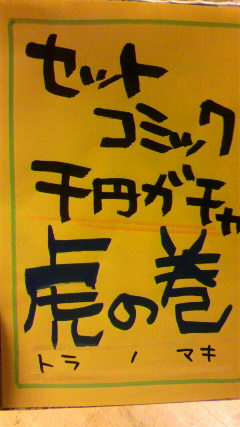 セット
コミック
千円ガチャ
虎の巻
トラノマキ